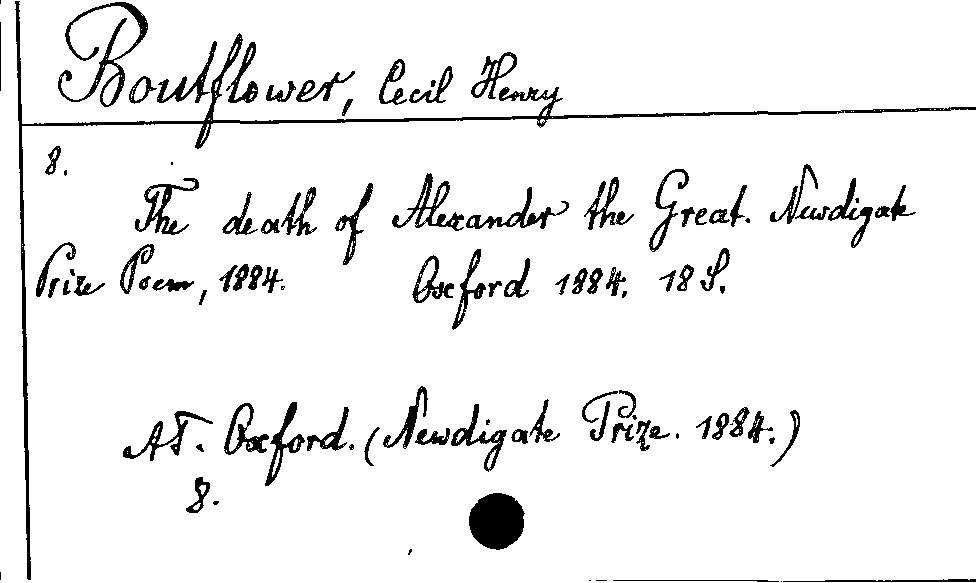 Boutflower, Cecil Henry
8.
The death of Alexander the Great. Newdigate
Prize Poem, 1884. Oxford 1884. 18 S.
AT. Oxford. (Newdigate Prize. 1884.)
8.